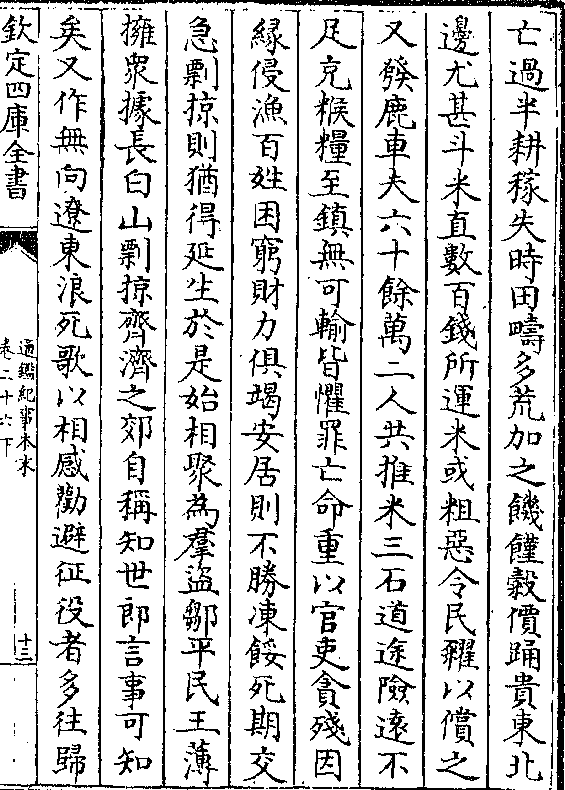 亡過半耕稼失時田疇多荒加之饑饉穀價踊貴東北
邊尤甚斗米直數百錢所運米或粗惡令民糴以償之
又發鹿車夫六十餘萬二人共推米三石道途險逺不
足充糇糧至鎮無可輸皆懼罪亡命重以官吏貪殘因
縁侵漁百姓困窮財力俱竭安居則不勝凍餒死期交
急剽掠則猶得延生於是始相聚為羣盗鄒平民王薄
擁衆據長白山剽掠齊濟之郊自稱知世郎言事可知
矣又作無向遼東浪死歌以相感勸避征役者多往歸
欽定四庫全書
通鑑紀事本末
卷二十六下
十三